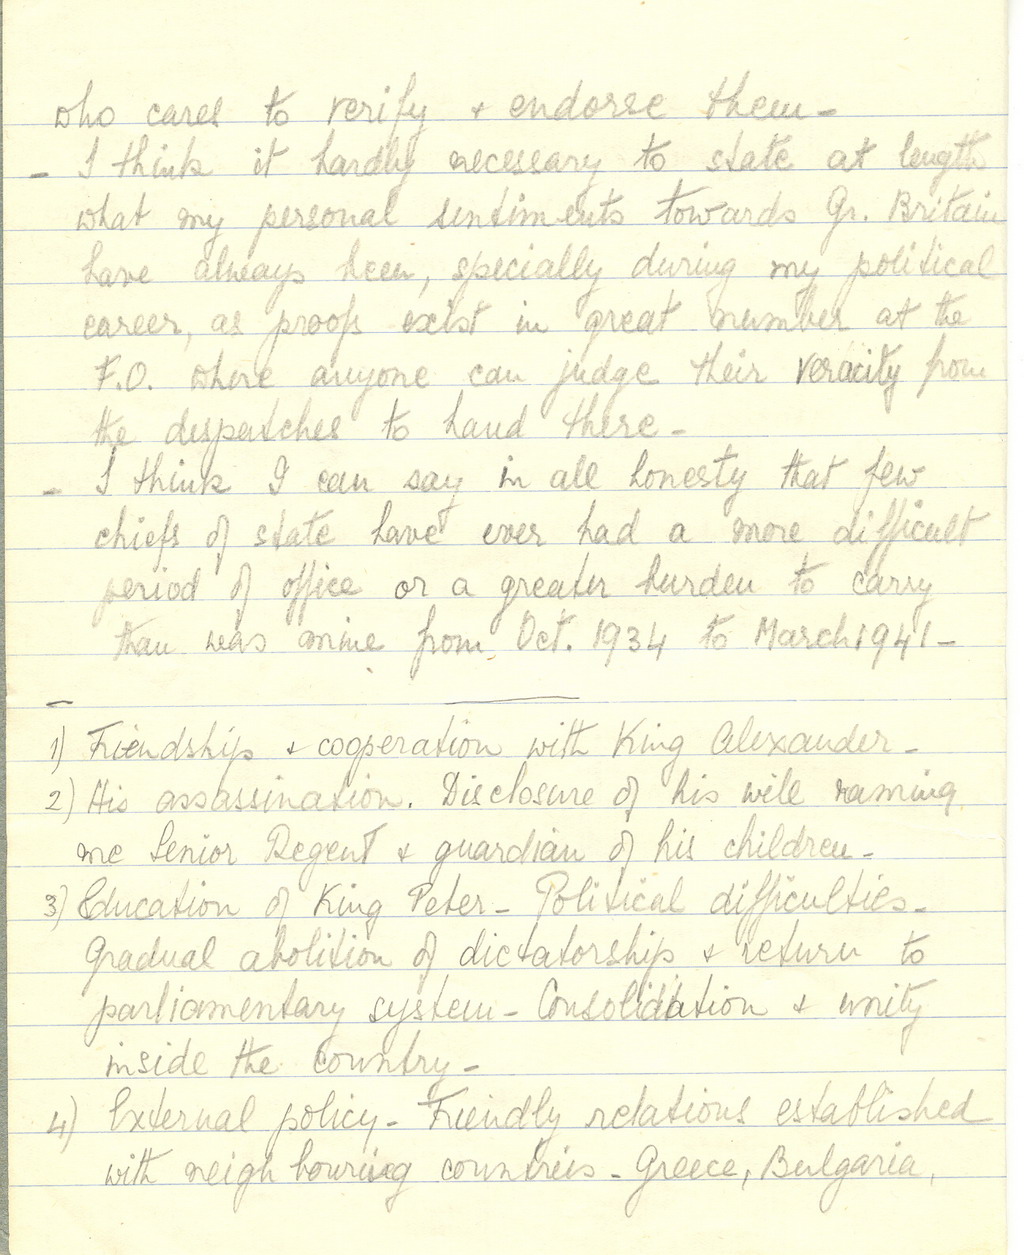 who cares to verify + endorse them –
– I think it hardly necessary to state at length
what my personal sentiments towards Gr. Britain
have always been, specially during my political
career, as proofs exist in great number at the
F.O. where anyone can judge their veracity from
the despatches to hand there –
– I think I can say in all honesty that few
chiefs of state have ever had a more difficult
period of office or a greater burden to carry
than was mine from Oct. 1934 to March 1941 –
–
1) Friendship + cooperation with King Alexander –
2) His assassination. Disclosure of his will naming
me Senior Regent + guardian of his children –
3) Education of King Peter – Political difficulties –
Gradual abolition of dictatorship + return to
parliamentary system – Consolidation + unity
inside the country –
4) External policy – Friendly relations established
with neighbouring countries – Greece, Bulgaria,